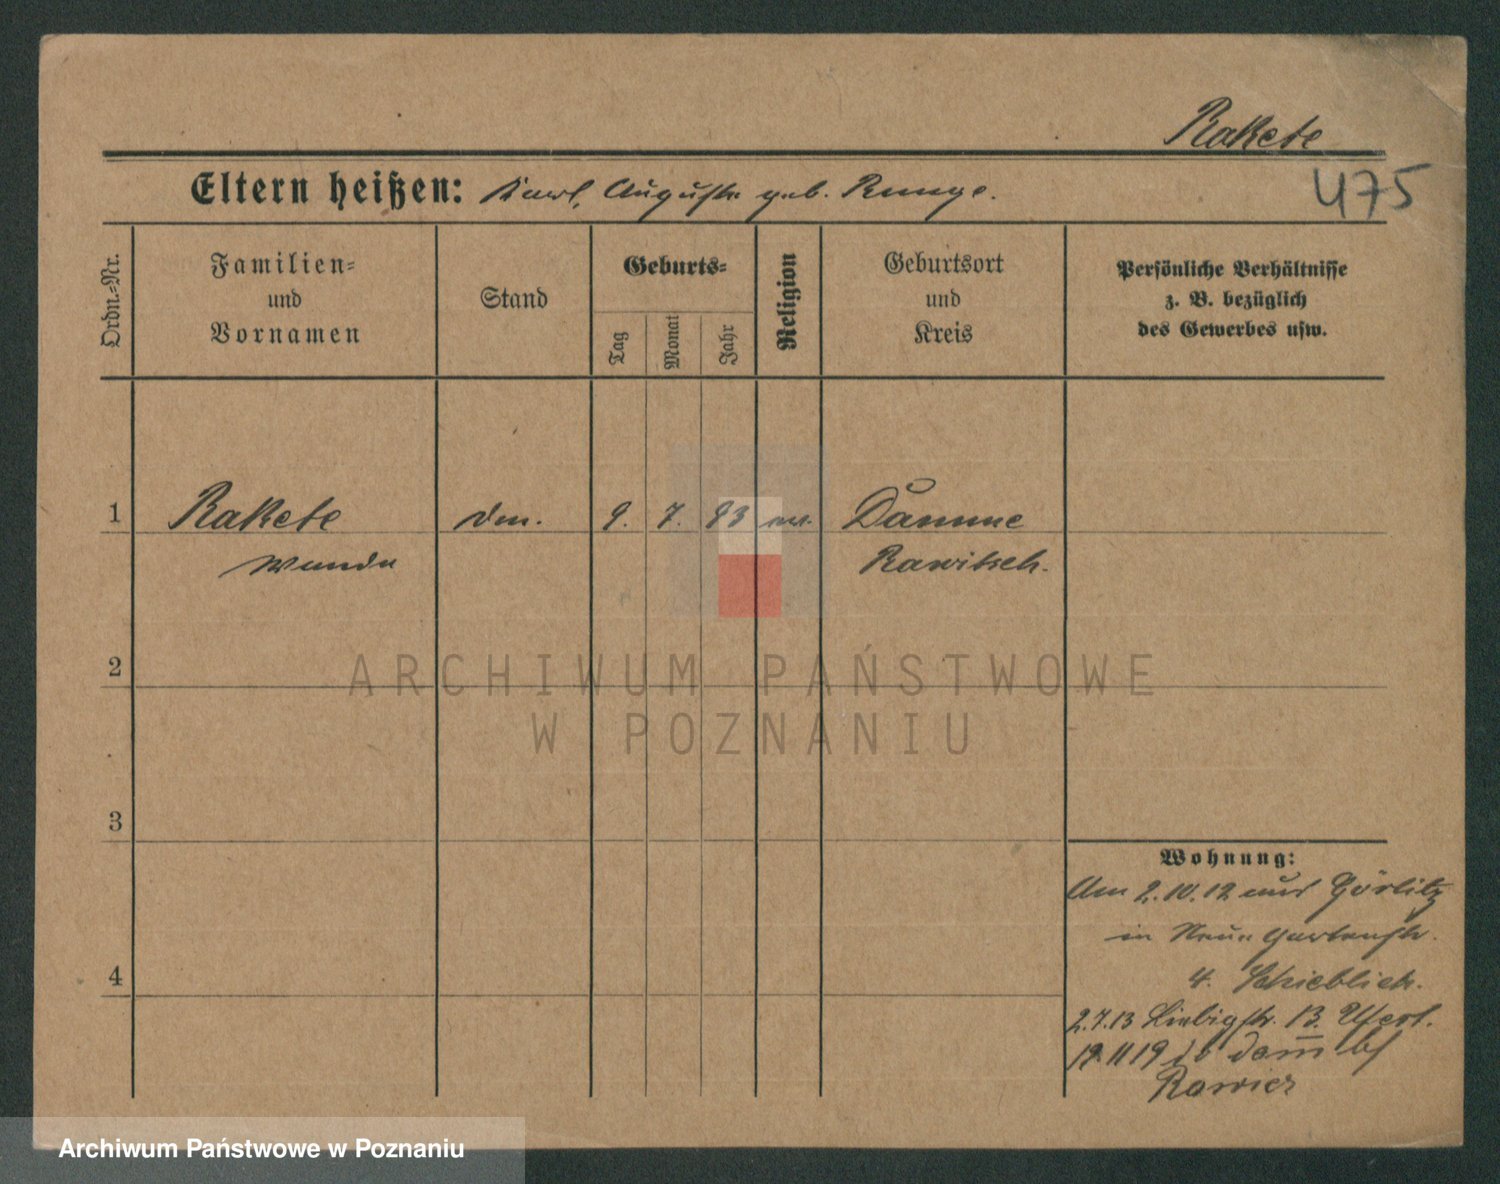 Rakete
Eltern heißen: Karl, Auguste geb. Runge.
475
Ordn.=Nr.
Familien=
und
Vornamen
Stand
Geburts=
Tag
Monat
Jahr
Religion
Geburtsort
und
Kreis
Persönliche Verhältnisse
z. B. bezüglich
des Gewerbes usw.
1 Rakete 9. 7. 93 Damme
Wanda Rawitsch.
2
ARCHIWUM PAŃSTWOWE
W POZNANIU
3
Wohnung:
Am 2.10.12 aus Görlitz
in Neue Gartenstr.
4. Schieblich.
2.7.13 Liebigstr. 13.
19.11 19
4
Archiwum Państwowe w Poznaniu